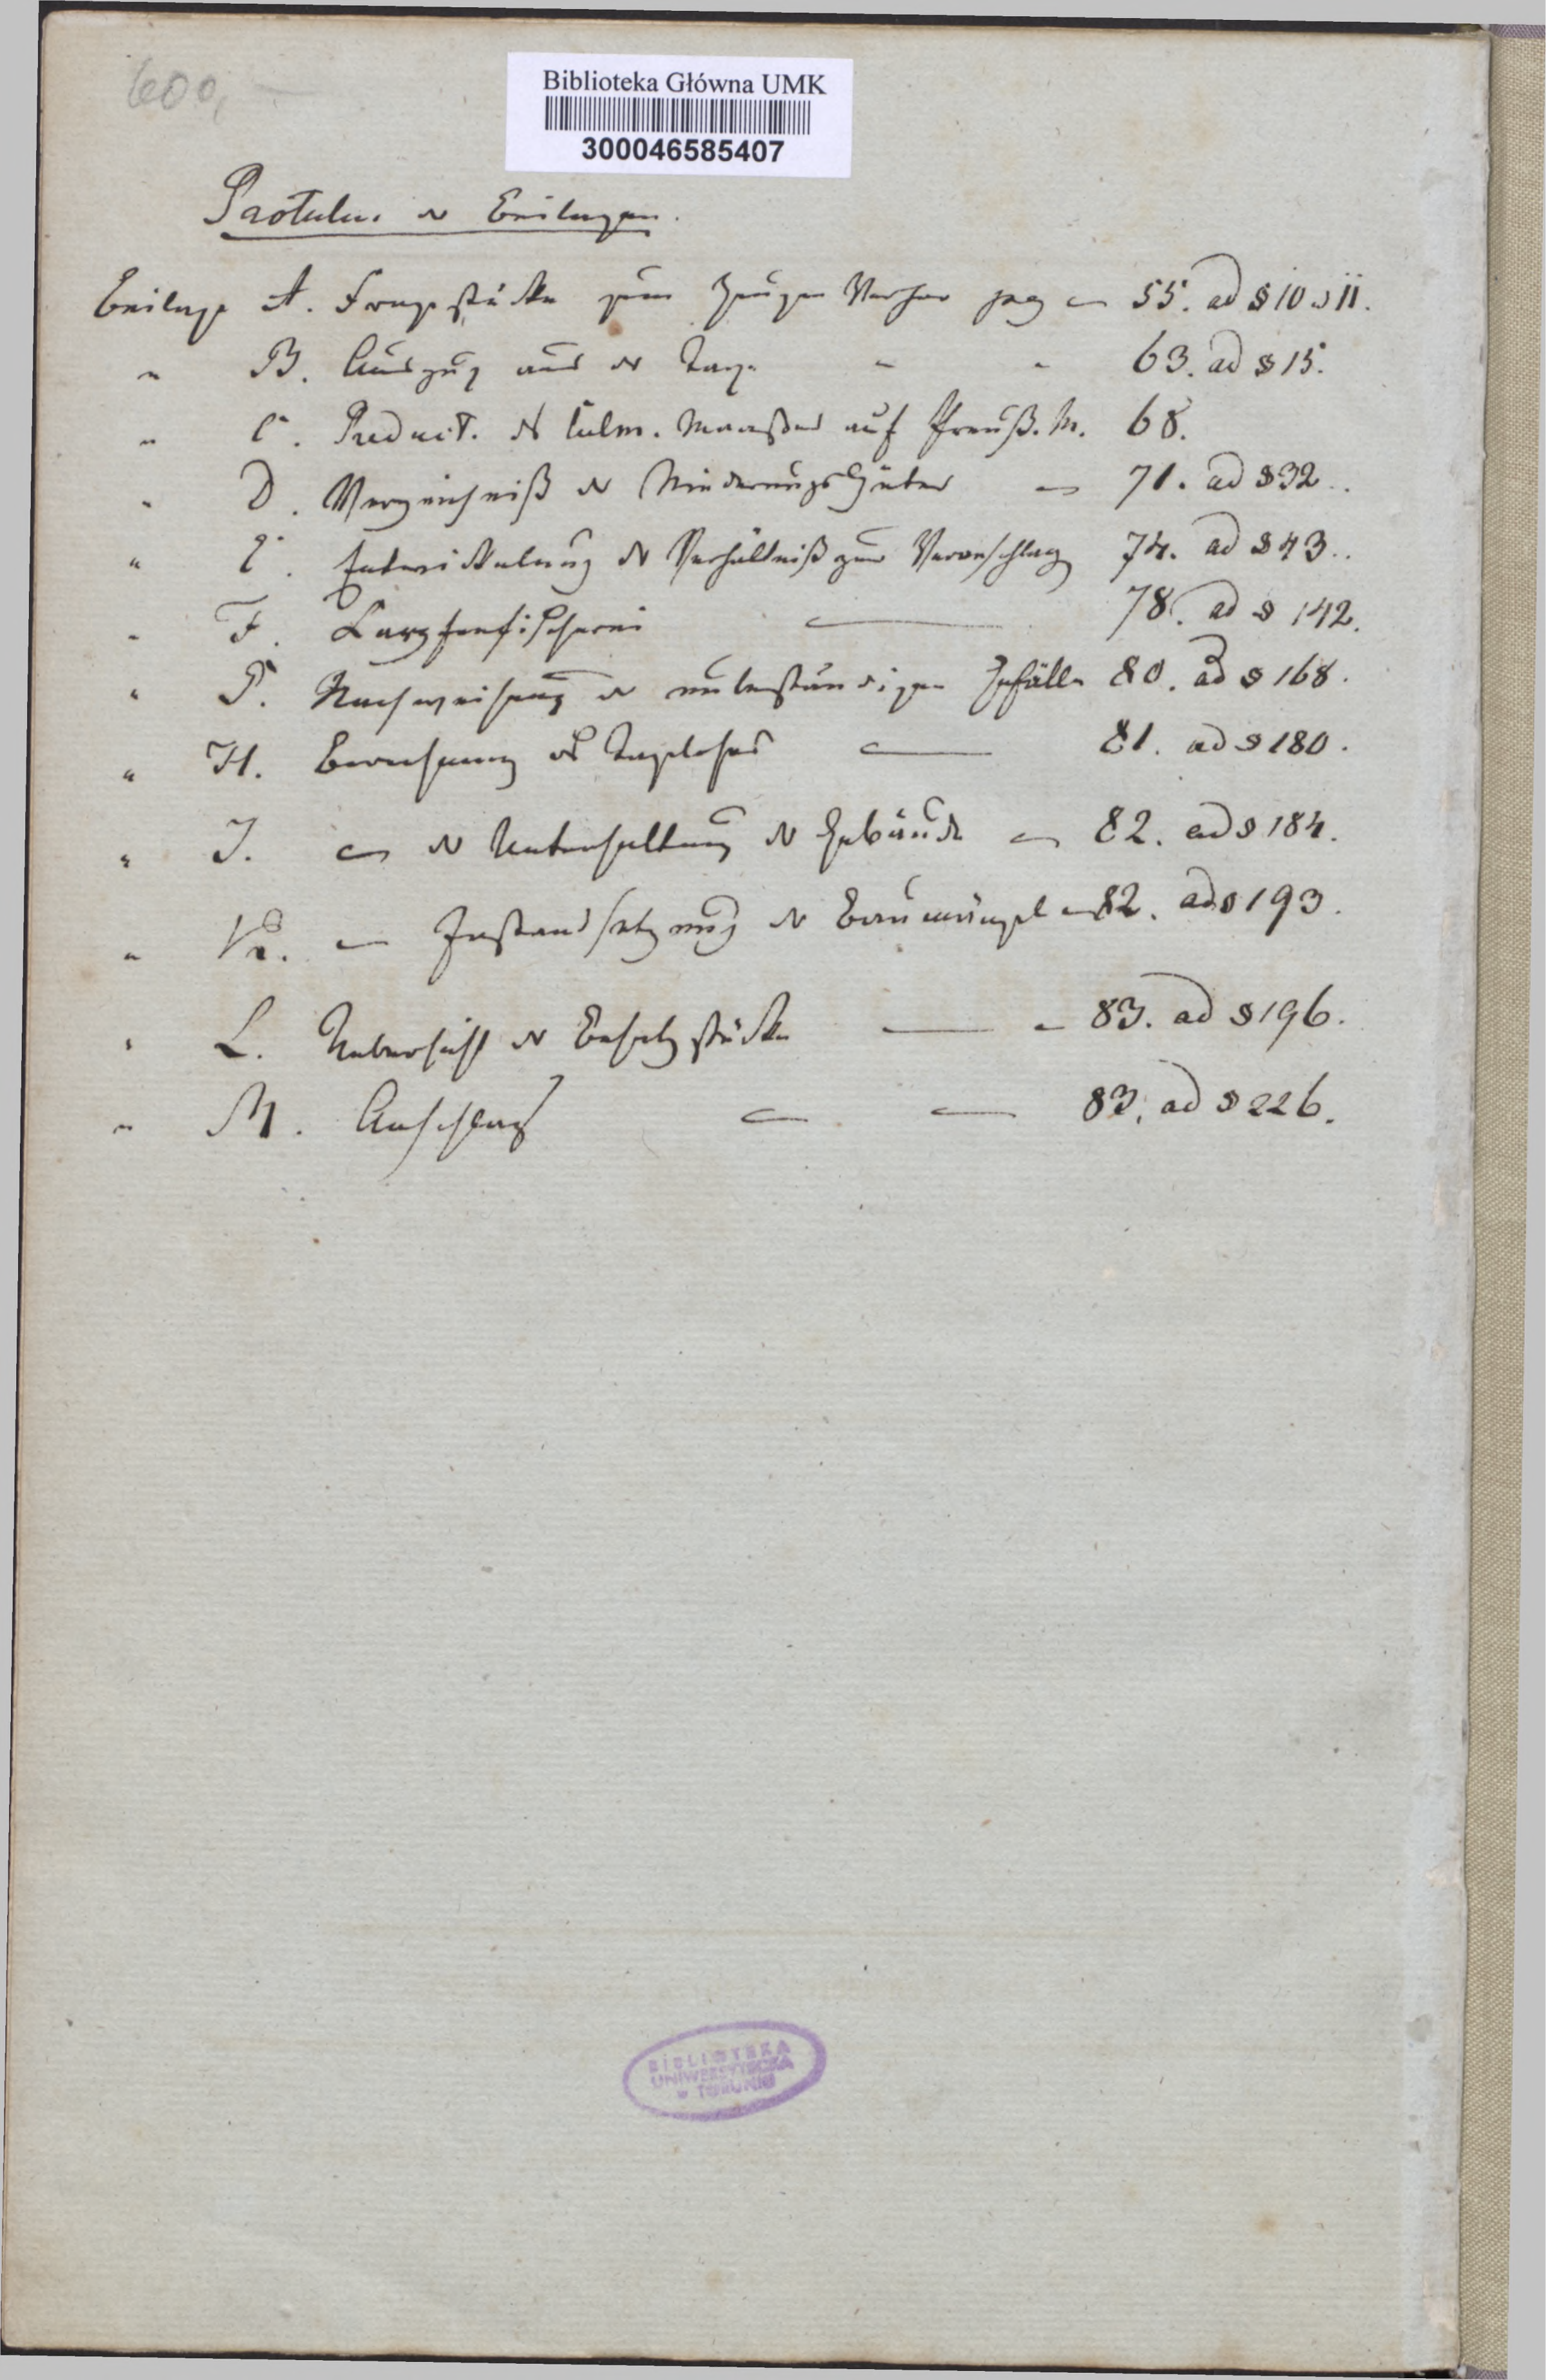 600,
Biblioteka Główna UMK
300046585407
Rotulus der Beilagen.
Beilage A. Fragestücke zum Zeugen Verhör pag — 55. ad § 10 u 11.
" B. Auszug aus der Taxe - - 63. ad § 15.
" C. Reduct. des Culm. Maaßes auf Preuß. M. 68.
" D. Verzeichniß der Niederungs Güter — 71. ad § 32..
" E. Entwickelung der Verhältniß zur Veranschlag 74. ad § 43..
" F. Karpfenfischerei — 78. ad § 142.
" G. Nachweisung der unbeständigen Gefälle 80. ad § 168.
" H. Berechnung des Tagelohns — 81. ad § 180.
" J. — der Unterhaltung der Gebäude — 82. ad § 184.
" K. — Instandsetzung der Baumängel — 82. ad § 193.
" L. Uebersicht der Besatzstücke — - 83. ad § 196.
" M. Anschlag — — 83. ad § 226.
BIBLIOTEKA
UNIWERSYTECKA
w TORUNIU